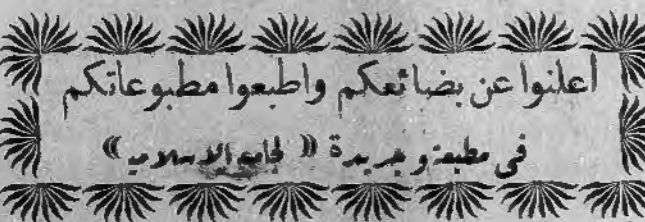 أعلنوا عن بضائعكم واطبعوا مطبوعاتكم
فى مطبعة و جريدة « الجامعة الاسلامية »